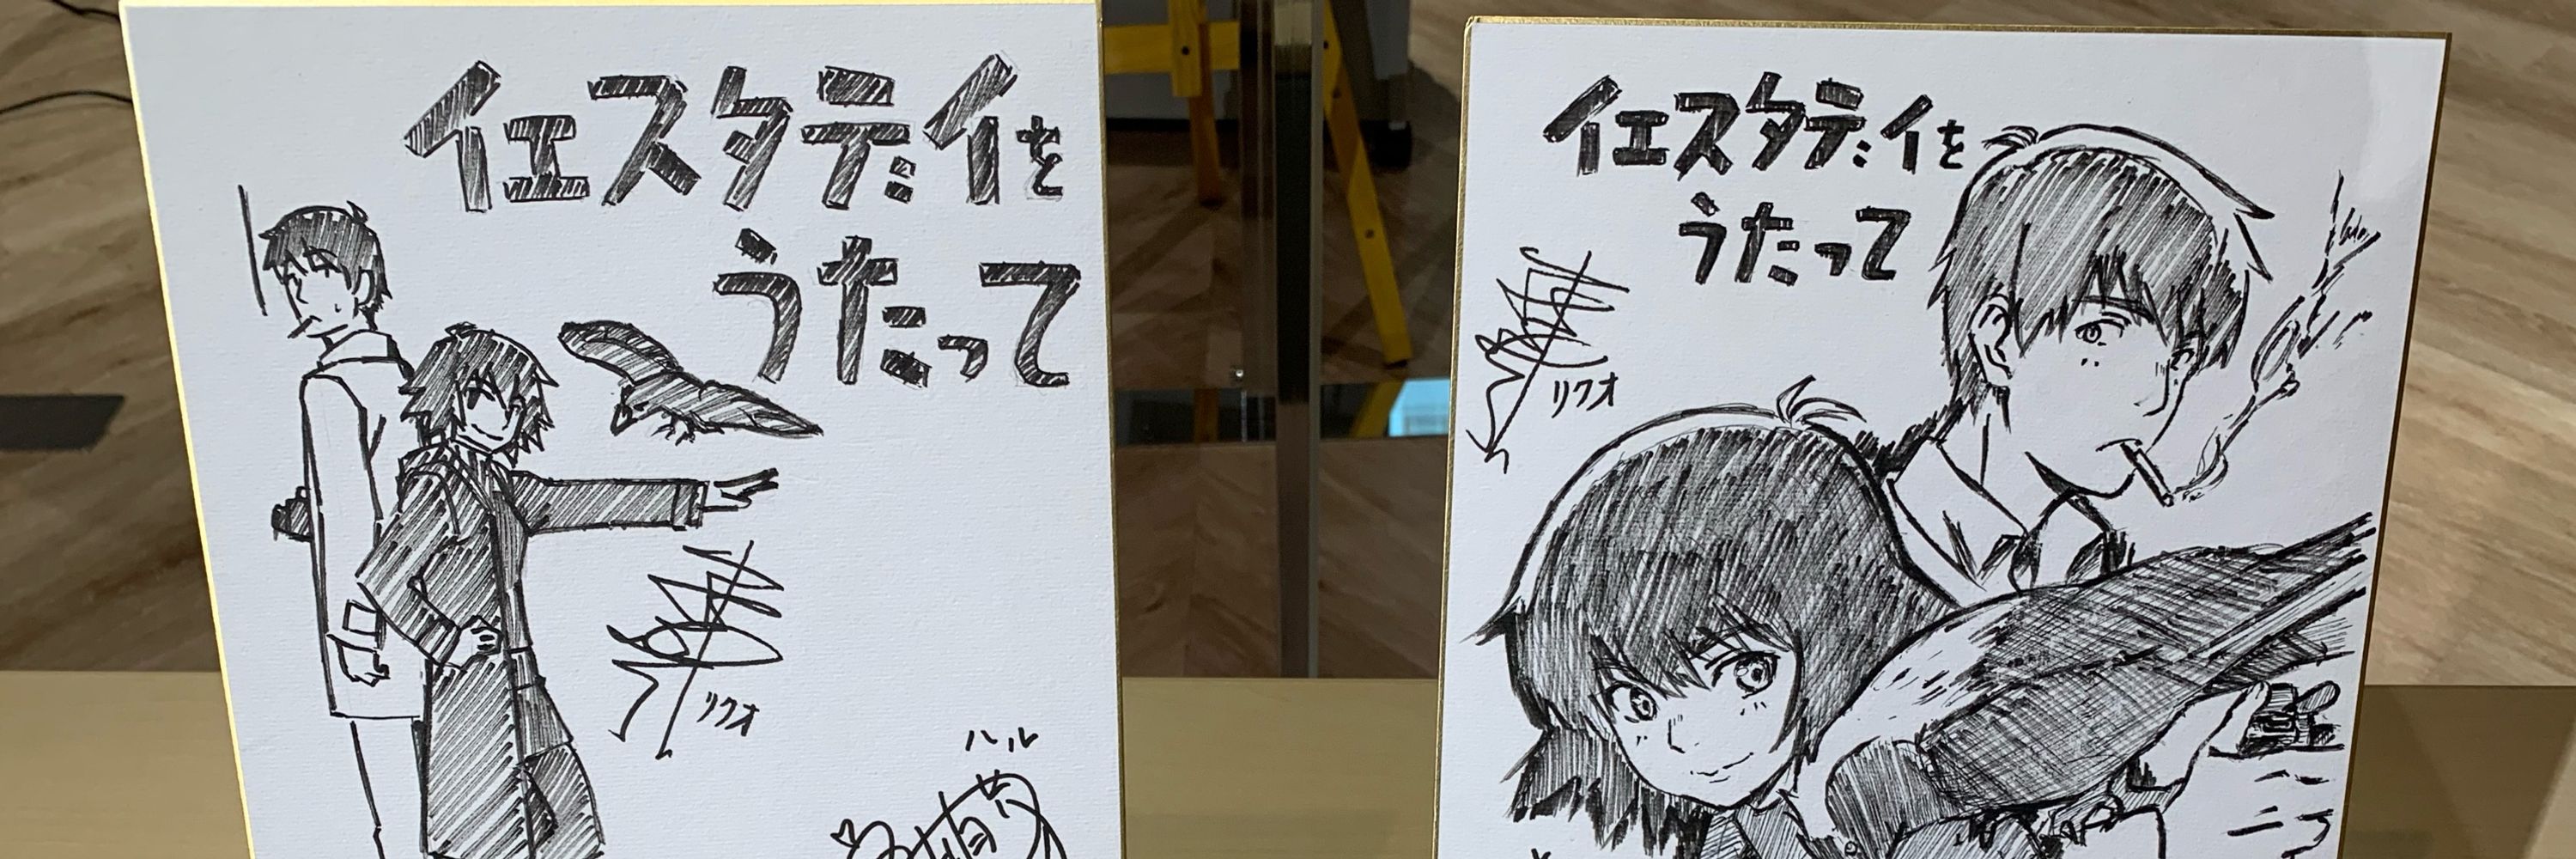 イエスタデイを
うたって
リクオ
ハル
イエスタデイを
うたって
リクオ